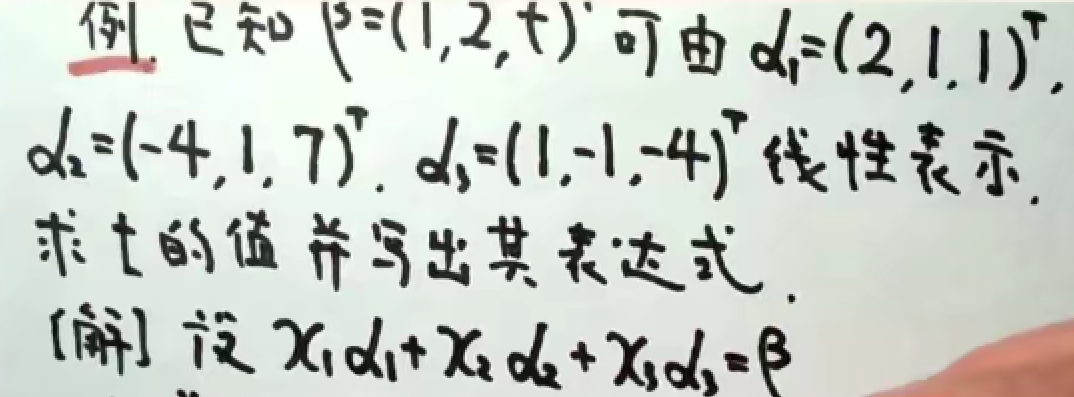 例. 已知 β=(1,2,t)ᵀ 可由 α₁=(2,1,1)ᵀ,
α₂=(-4,1,7)ᵀ. α₃=(1,-1,-4)ᵀ 线性表示.
求 t 的值 并写出其表达式.
[解] 设 x₁α₁+x₂α₂+x₃α₃=β